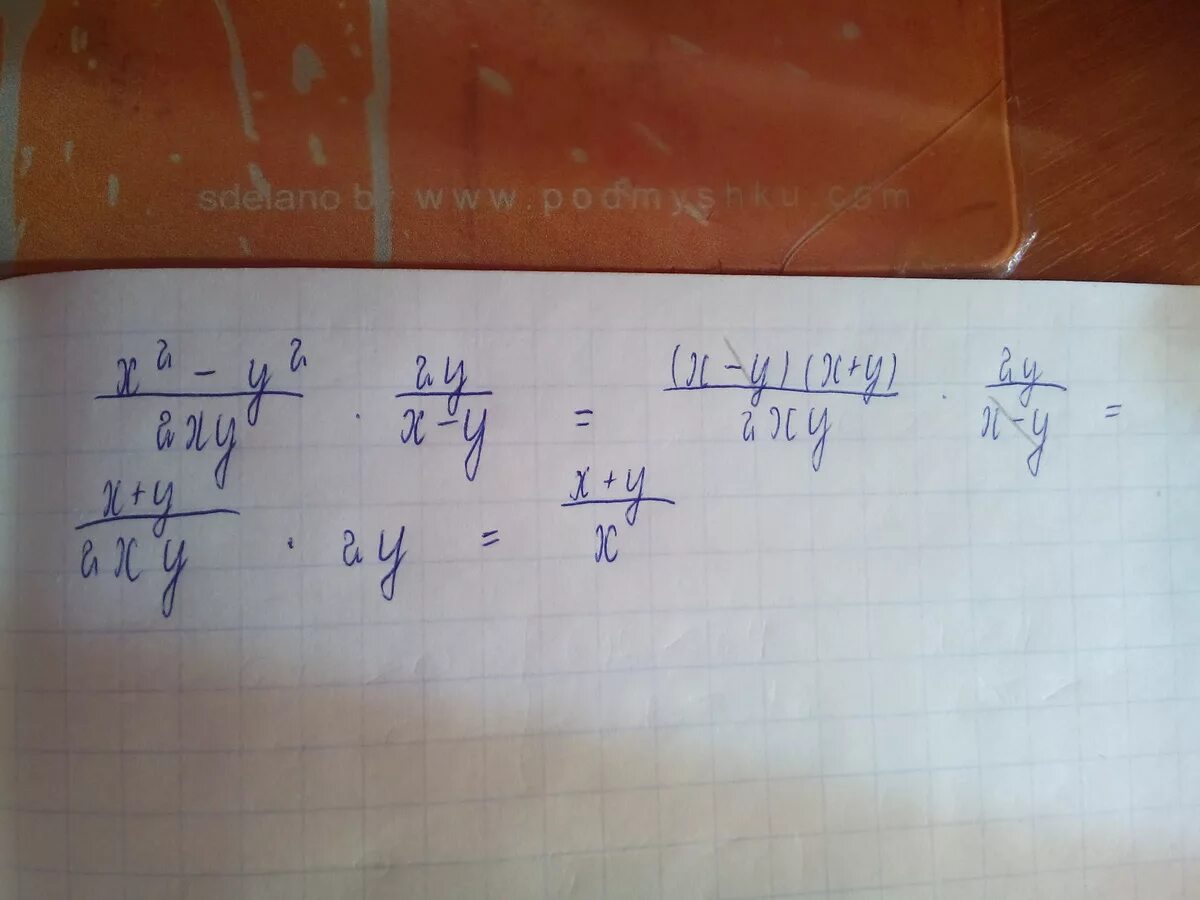 sdelano by www.podmyshku.com
(x² - y²)/(2xy) · (2y)/(x-y) = ((x-y)(x+y))/(2xy) · (2y)/(x-y) =
(x+y)/(2xy) · 2y = (x+y)/x